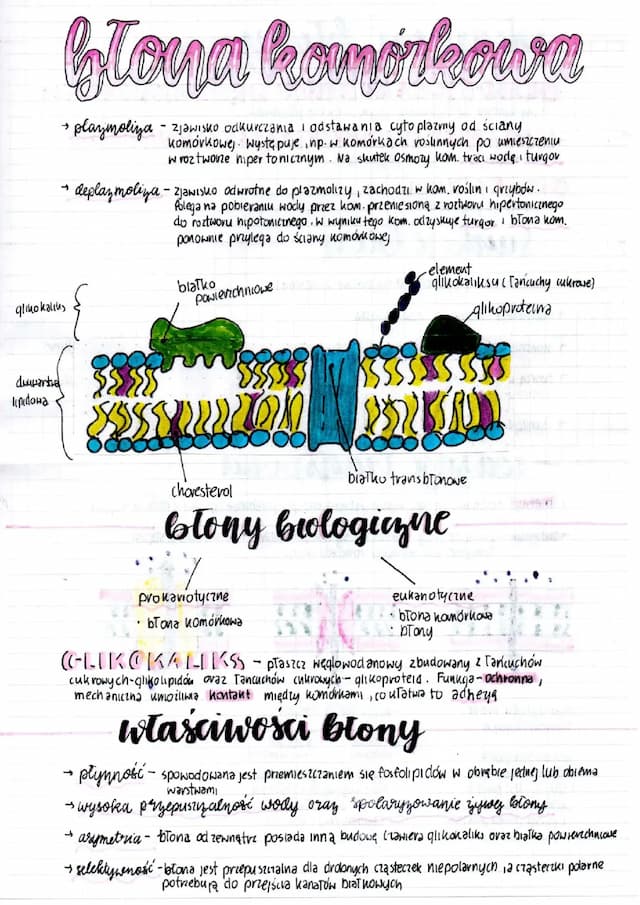 błona komórkowa
→ plazmoliza – zjawisko odkurczania i odstawania cytoplazmy od ściany
komórkowej. Występuje, np. w komórkach roślinnych po umieszczeniu
w roztworze hipertonicznym. Na skutek osmozy kom. traci wodę i turgor
→ deplazmoliza – zjawisko odwrotne do plazmolizy, zachodzi w kom. roślin i grzybów.
Polega na pobieraniu wody przez kom. przeniesioną z roztworu hipertonicznego
do roztworu hipotonicznego. W wyniku tego kom. odzyskuje turgor i błona kom.
ponownie przylega do ściany komórkowej
glikokaliks
białko
powierzchniowe
element
glikokaliksu (łańcuchy cukrowe)
glikoproteina
dwuwarstwa
lipidowa
choresterol
białko transbłonowe
błony biologiczne
prokariotyczne
• błona komórkowa
eukariotyczne
• błona komórkowa
• błony
GLIKOKALIKS – płaszcz węglowodanowy zbudowany z łańcuchów
cukrowych-glikolipidów oraz łańcuchów cukrowych – glikoproteid. Funkcja – ochronna,
mechaniczna umożliwa kontakt między komórkami, co ułatwa to adhezją
właściwości błony
→ płynność – spowodowana jest przemieszczaniem się fosfolipidów w obrębie jednej lub obiema
warstwami
→ wysoka przepuszalność wody oraz spolaryzowanie żywej błony
→ asymetria – błona od zewnątrz posiada inną budowę (zawiera glikokaliks oraz białka powierzchniowe
→ selektywność – błona jest przepuszalna dla drobnych cząsteczek niepolarnych, a cząsteczki polarne
potrzebują do przejścia kanałów białkowych